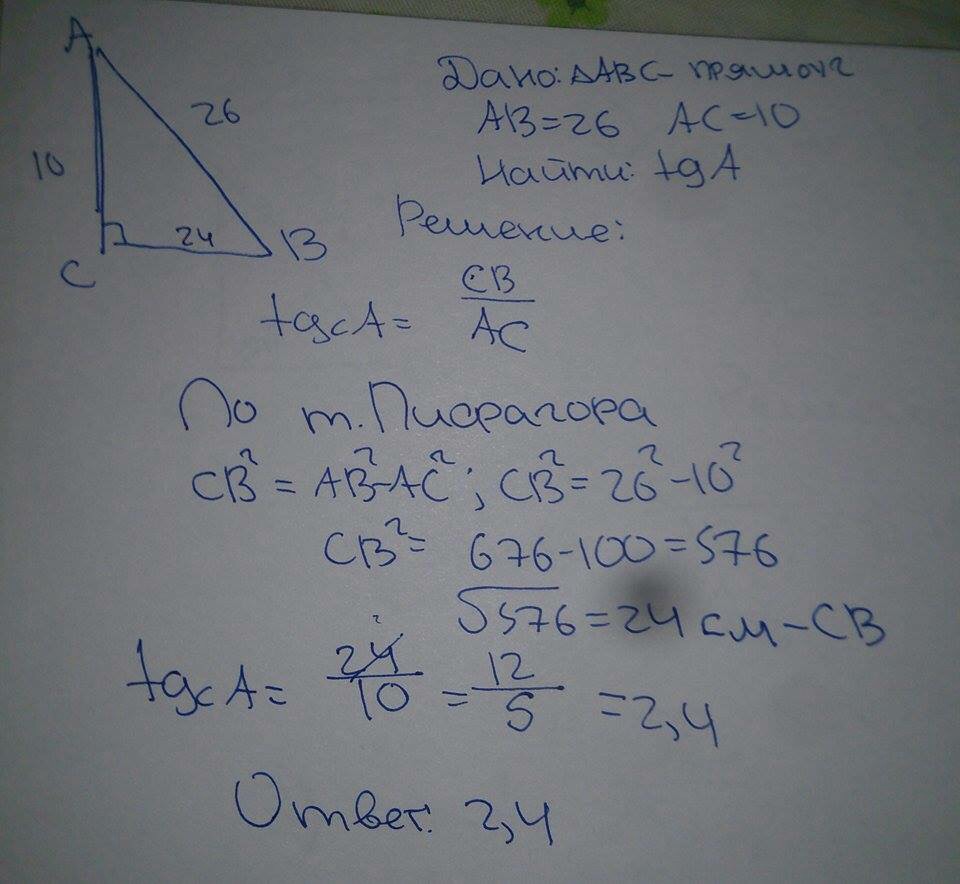 A
26
10
24
B
C
Дано: △ABC - прямоуг
AB=26 AC=10
Найти: tgA
Решение:
tg∠A = CB/AC
По т. Пифагора
CB² = AB²-AC²; CB² = 26²-10²
CB² = 676-100=576
√576=24 см-CB
tg∠A = 24/10 = 12/5 =2,4
Ответ: 2,4